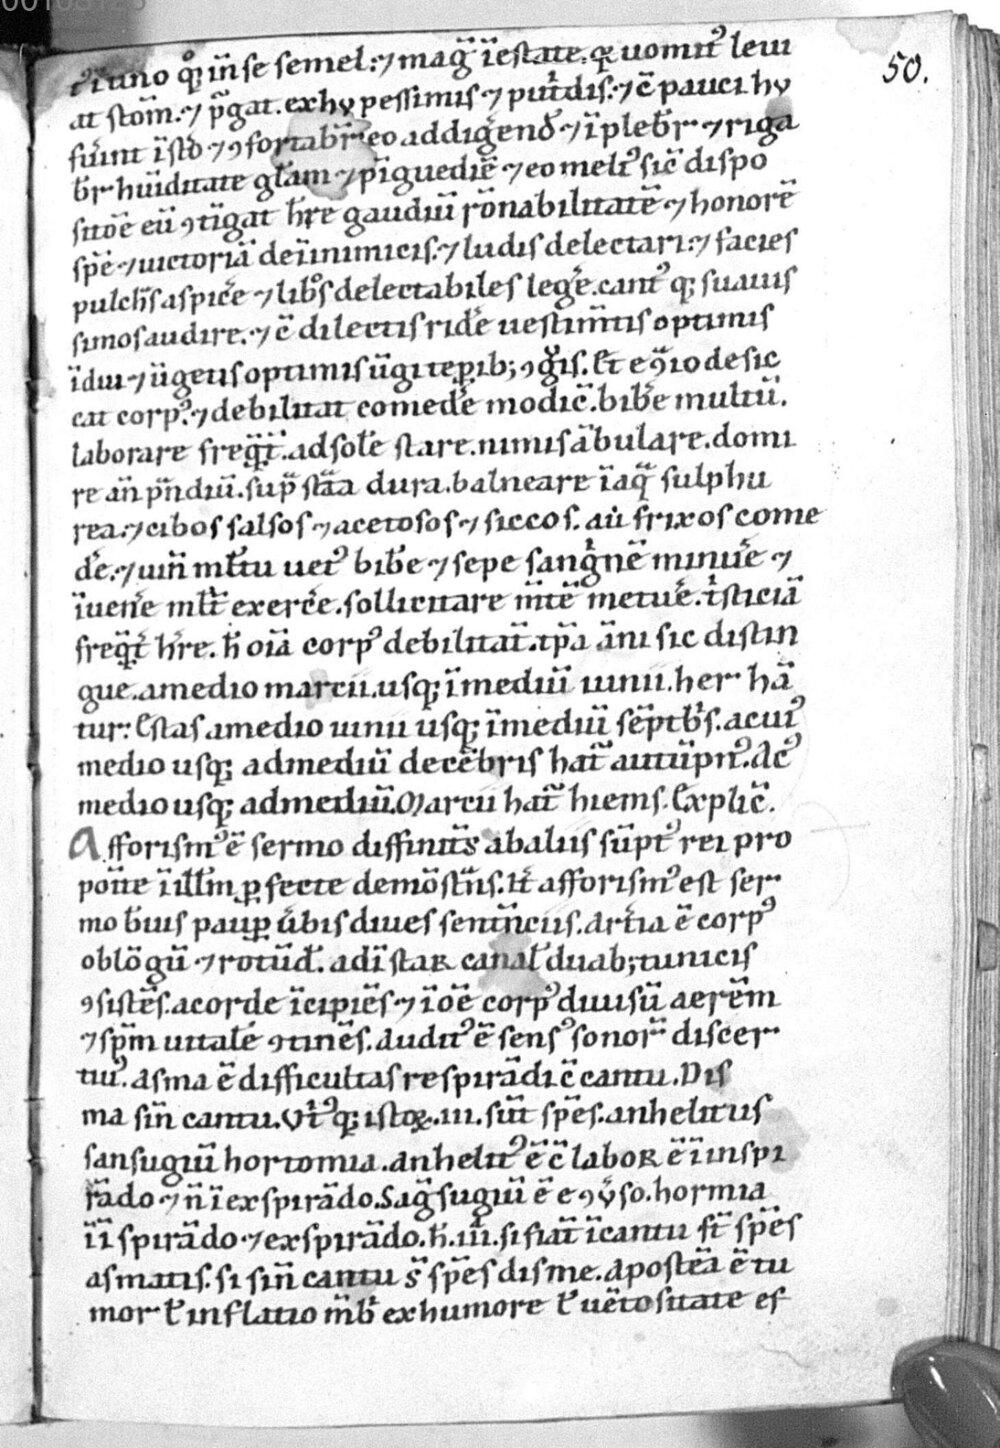 00103128
50.
t̄ ī uno qͦꝫ in̄se semel. ⁊ mag̅ ī estate. qꝛ uomit᷒ leui
at stom̄. ⁊ p̄gat. ex hỹ pessimis ⁊ put'dis. ⁊ c̄ pauci hỹ
fu'int īsto ⁊ ꝯfortabr̄ eo ad dig'end' ⁊ īplebr̄ ⁊ riga
br̄ hūiditate gl'am ⁊ pīguedīe ⁊ eo meli᷒ sic̄ dispo
sitōe eū ꝯtīgat hr̄e gaudiū rōnabilitatē ⁊ honorē
spē ⁊ uictoriā de īnimicis. ⁊ ludis delectari. ⁊ facies
pulch'ˢ aspic'e ⁊ lib'os delectabiles leg'e. cant᷒ qꝫ suauis
simos audire. ⁊ c̄ dilectis rid'e uestim̄tis optimis
īdui ⁊ ūgetis optimis ūgi tēp̲ibꝫ ꝯg'is. Et e ꝯ̄io desic
cat corp᷒. ⁊ debilitat comed'e modic̄. bib'e multū.
laborare freq̄t̄. ad sol'e stare. nimis ābulare. domi
re an̄ pn̄diū. sup̄ stāa dura. balneare ī aq̄ sulphu
rea. ⁊ cibos salsos ⁊ acetosos ⁊ siccos. aū frixos come
d'e. ⁊ uin̄ ml'tu uet᷒ bib'e ⁊ sepe sang'nē minu'e ⁊
īuen'e ml't exerc'e. sollicitare m̄tē metu'e. t'sticiā
freq̄t' hr̄e. h̄ oīa corp᷒ debilitat̄. tp̄a āni sic distin
gue. a medio marcii. usqꝫ ī mediū iunii. her hā
tur: Estas a medio iunii usqꝫ ī mediū sēptb'ˢ. a cui᷒
medio usqꝫ ad mediū decēbris hat̄ autūpn᷒. Ac᷒
medio usqꝫ ad mediū Marcii hat̄ hiems. Explic̄.
Afforism᷒ ē sermo diffinit̄s ab aliis sūpt᷒ rei pro
pon̄e ī ill'm p̲fecte demōst̄ns. It' afforism᷒ est ser
mo b'uis paup̲ ūbis diues sentn̄ciis. Art'ia ē corp᷒
oblōgū ⁊ rotūd'. ad īstar canal' duabꝫ tunicis
ꝯsistēs. a corde īcipiēs ⁊ ī oē corp᷒ diuisū aerēm
⁊ sp̄m uitalē ꝯtinēs. Audit᷒ ē sens᷒ sonor̄ discer
tiu᷒. Asma ē difficultas respirādi c̄ cantu. Dis
ma sin̄ cantu. Vt'᷒qꝫ istoꝝ .iii. sūt spēs. anhelitus
sansugiū hortomia. anhelit᷒ ē c̄ labor ē ī inspi
rādo ⁊ n̄ ī exspirādo. Sag̅sugiū ē e ꝯv̄so. hormia
ī īspirādo ⁊ exspirādo. h̄. iii. si fiāt ī cantu st̄ spēs
asmatis. si sin̄ cantu s̄ spēs disme. Apostēa ē tu
mor t' inflatio m̄b' ex humore t' uētositate ef